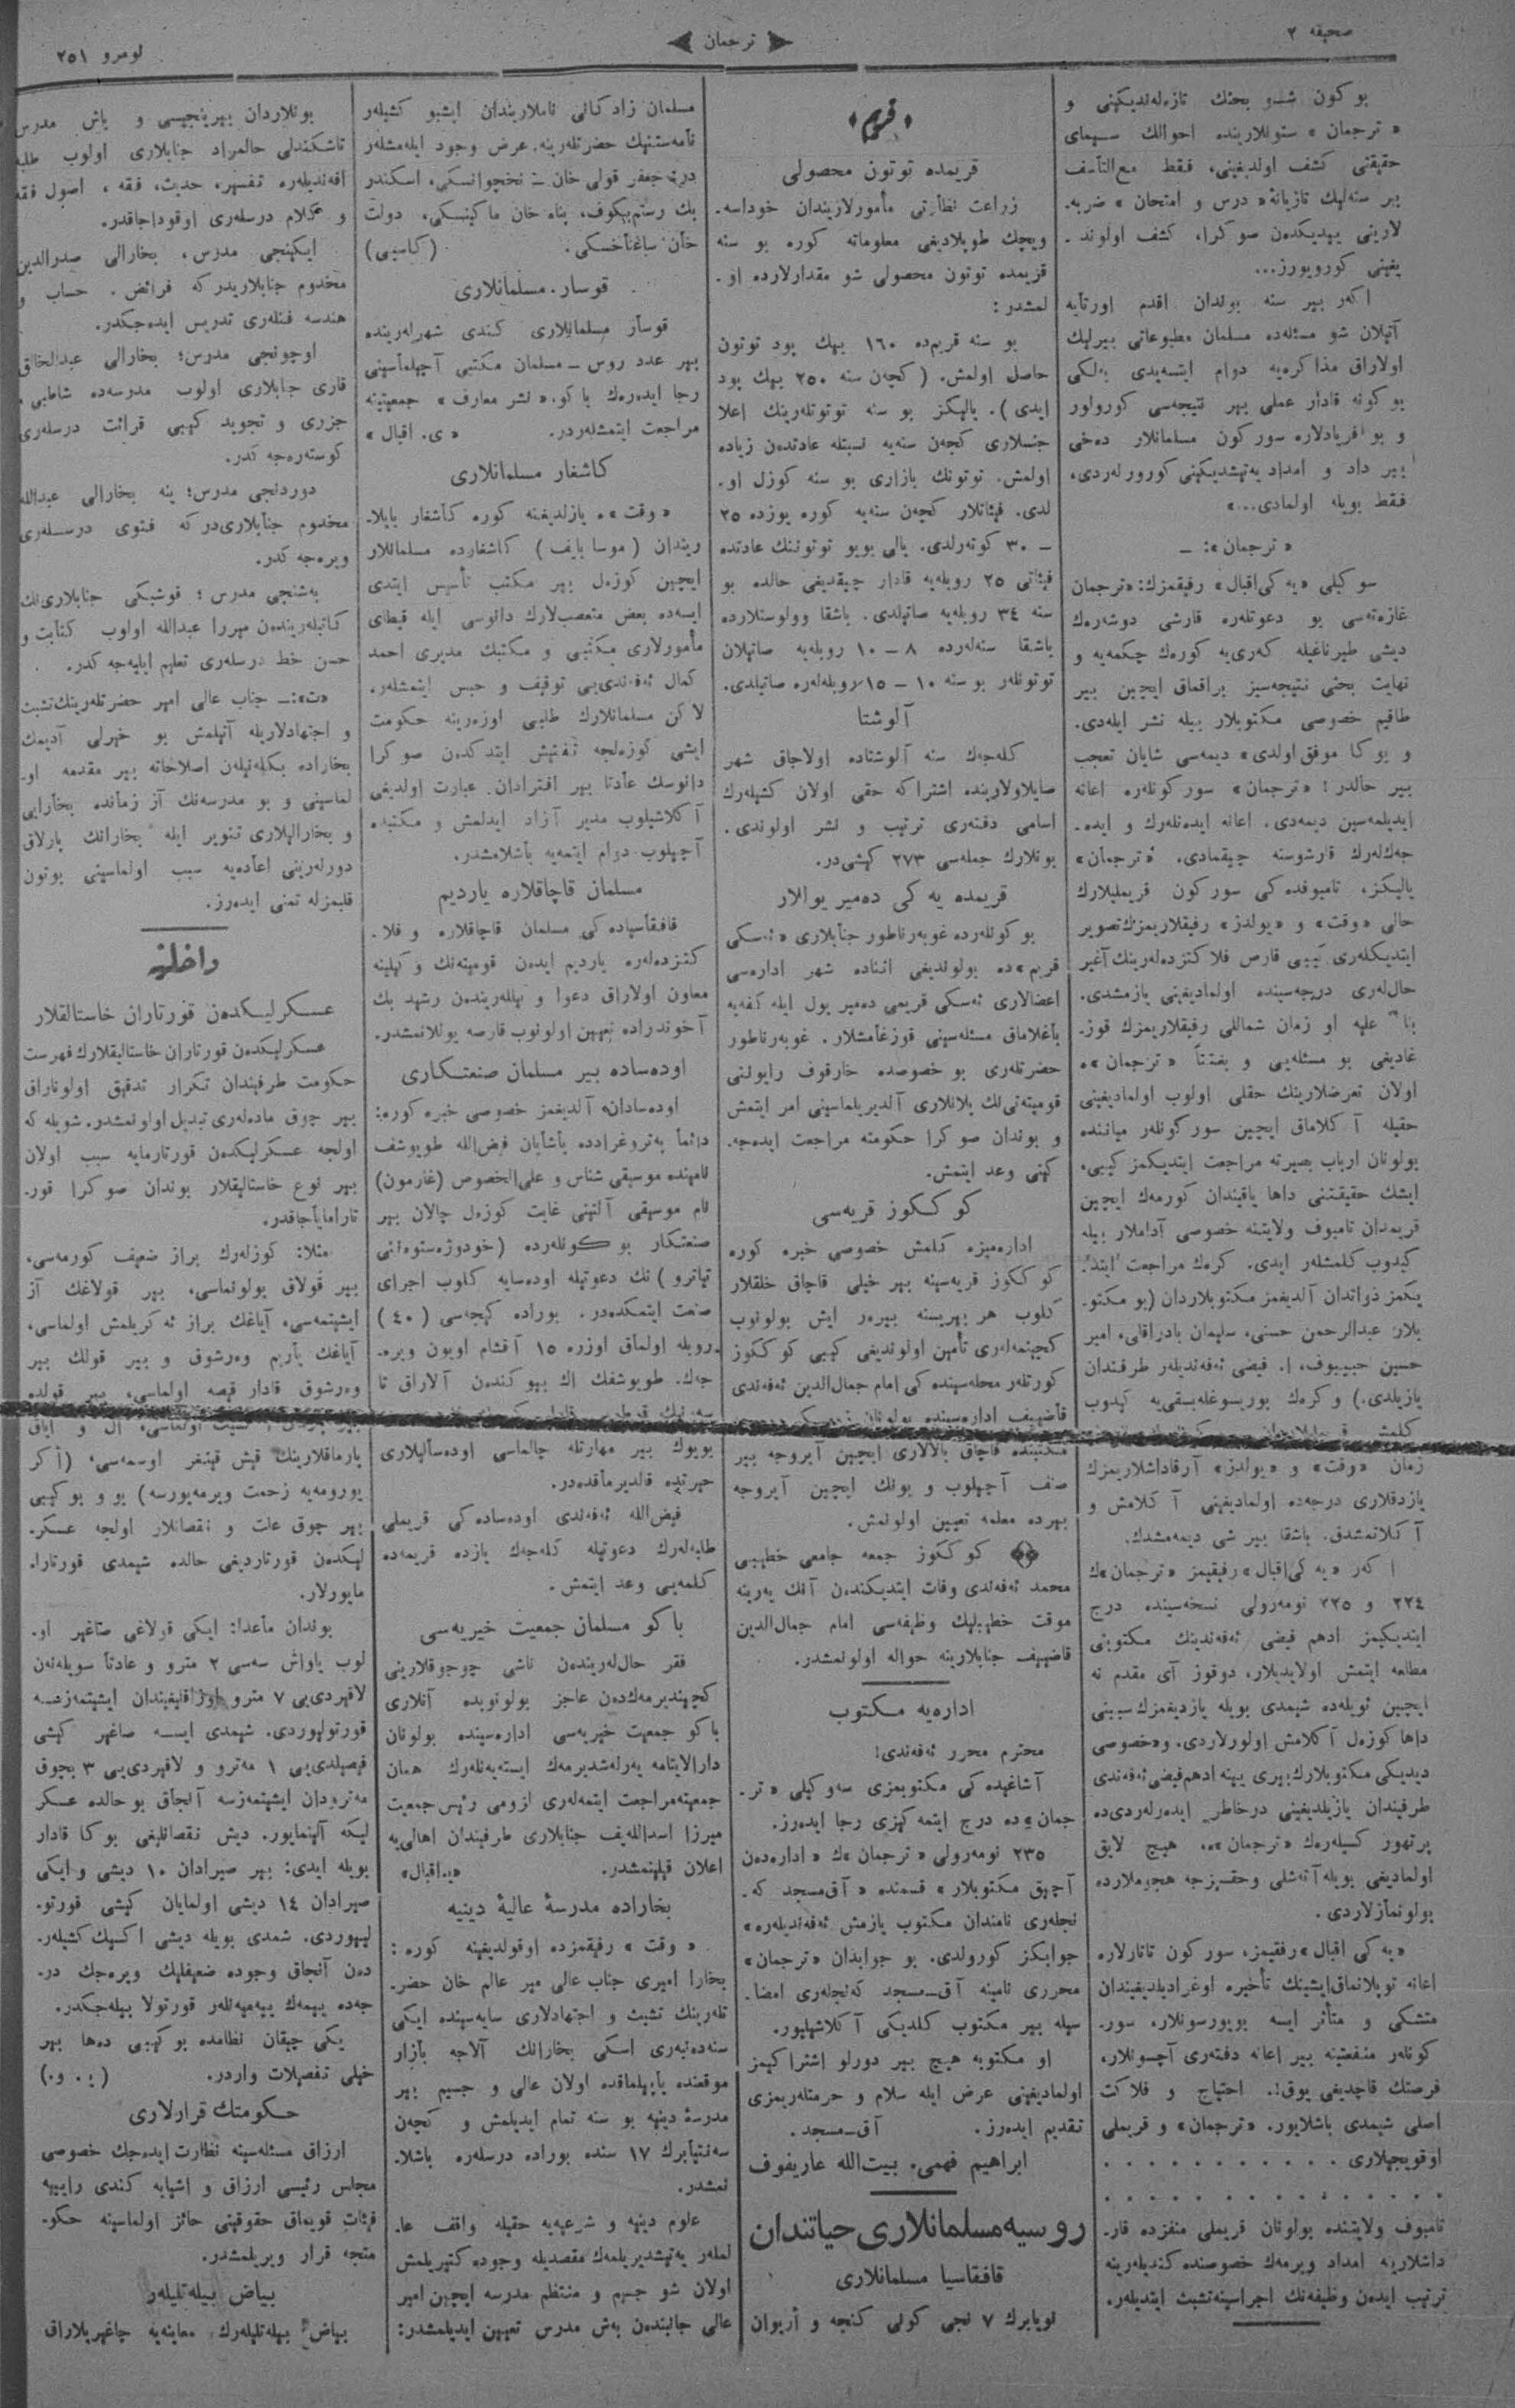 صحیفه ٢
ترجمان
نومرو ٢٥١
بو کون شو بحثك تازه‌له‌ندیکینی و
« ترجمان » ستونلارینده احوالك سیمای
حقیقتی کشف اولدیغینی، فقط مع‌التأسف
بیر سنه‌لیك تازیانهٔ « درس و امتحان » ضربه‌ـ
لارینی ییدیکدن صوکرا، کشف اولوندـ
یغینی کورویورز...
اکر بیر سنه بوندان اقدم اورتایه
آتیلان شو مسئله‌ده مسلمان مطبوعاتی بیرلیك
اولاراق مذاکره‌یه دوام ایتسه‌یدی به‌لکی
بو کونه قادار عملی بیر نتیجه‌سی کورولور
و بو فریادلاره سورکون مسلمانلار ده‌خی
بیر داد و امداد یه‌تیشدیکینی کورورلردی،
فقط بویله اولمادی...»
« ترجمان »: ـ
سوکیلی «یه‌کی اقبال» رفیقمزك: «ترجمان
غازه‌ته‌سی بو دعوتله‌ره قارشی دوشه‌رك
دیشی طیرناغیله که‌ری‌یه کوره‌ك چکمه‌یه و
نهایت بحثی نتیجه‌سیز براقماق ایچین بیر
طاقیم خصوصی مکتوبلار بیله نشر ایله‌دی.
و بوکا موفق اولدی» دیمه‌سی شایان تعجب
بیر حالدر! «ترجمان» سورکونله‌ره اعانه
ایدیلمه‌سین دیمه‌دی. اعانه ایده‌نله‌رك و ایده‌ـ
جه‌کله‌رك قارشوسنه چیقمادی. «ترجمان»
یالیکز، تامبوفده‌کی سورکون قریملیلارك
حالی «وقت» و «یولدز» رفیقلاریمزك تصویر
ایتدیکله‌ری کیبی قارص فلاکتزده‌له‌رینك آغیر
حال‌له‌ری درجه‌سینده اولمادیغینی یازمشدی.
بناء علیه او زمان شماللی رفیقلاریمزك قوزـ
غادیغی بو مسئله‌یی و بغتتاً «ترجمان»ه
اولان تعرضلارینك حقلی اولوب اولمادیغینی
حقیله آکلاماق ایچین سورکونله‌ر میاننده
بولونان ارباب بصیرته مراجعت ایتدیکمز کیبی،
ایشك حقیقتنی داها یاقیندان کورمه‌ك ایچین
قریمدان تامبوف ولایتنه خصوصی آداملار بیله
کیدوب کلمشله‌ر ایدی. کره‌ك مراجعت ایتدـ
یکمز ذواتدان آلدیغمز مکتوبلاردان (بو مکتوـ
بلار: عبدالرحمن حسنی، سلیمان بادراقلی، امیر
حسین حبیبوف، ا. فیضی ئه‌فه‌ندیله‌ر طرفندان
یازیلدی.) و کره‌ك بوریسوغله‌بسقی‌یه کیدوب
زمان «وقت» و «یولدز» آرقاداشلاریمزك
یازدقلاری درجه‌ده اولمادیغینی آکلامش و
آکلاتمشدق. باشقا بیر شی دیمه‌مشدك.
اکه‌ر «یه‌کی اقبال» رفیقیمز «ترجمان»ك
٢٢٤ و ٢٢٥ نومه‌رولی نسخه‌سینده درج
ایتدیکیمز ادهم فیضی ئه‌فه‌ندینك مکتوبنی
مطالعه ایتمش اولایدیلار، دوقوز آی مقدم نه
ایچین ئویله‌ده شیمدی بویله یازدیغمزك سببنی
داها کوزه‌ل آکلامش اولورلاردی. و «خصوصی
دیدیکی مکتوبلارك بیری یینه ادهم فیضی ئه‌فه‌ندی
طرفیندان یازیلدیغینی درخاطر ایده‌رله‌ردی‌ده
پرتهور کسیله‌رك «ترجمان»ه، هیچ لایق
اولمادیغی بویله آته‌شلی و حقسزجه هجوملارده
بولونمازلاردی.
«یه‌کی اقبال» رفقیمز، سورکون تاتارلاره
اعانه توپلانماق ایشینك تأخیره اوغرادیلدیغیندان
متشکی و متأثر ایسه بویورسونلار، سورـ
کونله‌ر منفعتینه بیر اعانه دفته‌ری آچسونلار،
فرصتك قاچدیغی یوق!. احتیاج و فلاکت
اصلی شیمدی باشلایور. «ترجمان» و قریملی
اوقویجیلاری . . . . . . . . . . .
. . . . . . . . . . . . . . . .
تامبوف ولایتنده بولونان قریملی منفزده قارـ
داشلارینه امداد ویرمه‌ك خصوصنده کندیله‌رینه
ترتیب ایده‌ن وظیفه‌نك اجراسینه تشبث ایتدیله‌ر.
قریم
قریمده توتون محصولی
زراعت نظارتی مأمورلارندان خوداسه‌ـ
ویچك طوپلادیغی معلوماته کوره بو سنه
قریمده توتون محصولی شو مقدارلارده اوـ
لمشدر:
بو سنه قریم‌ده ١٦٠ بیك پود توتون
حاصل اولمش. (کچه‌ن سنه ٢٥٠ بیك پود
ایدی). یالیکز بو سنه توتونله‌رینك اعلا
جنسلاری کچه‌ن سنه‌یه نسبتله عادتدن زیاده
اولمش. توتونك بازاری بو سنه کوزل اوـ
لدی. فیئاتلار کچه‌ن سنه‌یه کوره یوزده ٢٥
ـ ٣٠ کوته‌رلدی. یالی بویو توتوننك عادتده
فیئاتی ٢٥ روبله‌یه قادار چیقدیغی حالده بو
سنه ٣٤ روبله‌یه صاتیلدی. باشقا وولوستلارده
باشقا سنه‌له‌رده ٨ ـ ١٠ روبله‌یه صاتیلان
توتونله‌ر بو سنه ١٠ ـ ١٥ روبله‌له‌ره صاتیلدی.
آلوشتا
کله‌جه‌ك سنه آلوشتاده اولاجاق شهر
صایلاولارینده اشتراکه حقی اولان کشیله‌رك
اسامی دفته‌ری ترتیب و نشر اولوندی.
بونلارك جمله‌سی ٢٧٣ کیشی‌در.
قریمده یه‌کی ده‌میر یوالار
بو کونله‌رده غوبه‌رناطور جنابلاری «ئه‌سکی
قریم»ده بولوندیغی اثناده شهر اداره‌سی
اعضالاری ئه‌سکی قریمی ده‌میر یول ایله کفه‌یه
باغلاماق مسئله‌سینی قوزغامشلار. غوبه‌رناطور
حضرتله‌ری بو خصوصده خارقوف رایونی
قومیته‌تی‌نك پلانلاری آلدیریلماسینی امر ایتمش
و بوندان صوکرا حکومته مراجعت ایده‌جه‌ـ
کینی وعد ایتمش.
کوککوز قریه‌سی
اداره‌میزه کلمش خصوصی خبره کوره
کوککوز قریه‌سینه بیر خیلی قاچاق خلقلار
کلوب هر بیریسنه بیره‌ر ایش بولونوب
کچینمه‌له‌ری تأمین اولوندیغی کیبی کوککوز
کورتله‌ر محله‌سینده‌کی امام جمال‌الدین ئه‌فه‌ندی
قاضییف اداره‌سینده بولونان
مکتبنده قاچاق بالالاری ایچین آیروجه بیر
صنف آچیلوب و بونك ایچین آیروجه
بیرده معلمه تعیین اولونمش.
کوککوز جمعه جامعی خطیبی
محمد ئه‌فه‌ندی وفات ایتدیکندن آنك یه‌رینه
موقت خطیبلیك وظیفه‌سی امام جمال‌الدین
قاضییف جنابلارینه حواله اولونمشدر.
اداره‌یه مکتوب
محترم محرر ئه‌فه‌ندی!
آشاغیده‌کی مکتوبمزی سه‌وکیلی «ترـ
جمان»ده درج ایتمه‌کیزی رجا ایده‌رز.
٢٣٥ نومه‌رولی «ترجمان»ك «اداره‌دن
آچیق مکتوبلار» قسمنده «آق‌مسجد که‌ـ
نجله‌ری نامندان مکتوب یازمش ئه‌فه‌ندیله‌ره»
جوابکز کورولدی. بو جوابدان «ترجمان»
محرری نامینه آق‌ـ‌مسجد که‌نجله‌ری امضاـ
سیله بیر مکتوب کلدیکی آکلاشیلیور.
او مکتوبه هیچ بیر دورلو اشتراکیمز
اولمادیغینی عرض ایله سلام و حرمتله‌ریمزی
تقدیم ایده‌رز. آق‌ـ‌مسجد.
ابراهیم فهمی. بیت‌الله عاریفوف
روسیه مسلمانلاری حیاتندان
قافقاسیا مسلمانلاری
نویابرك ٧ نجی کونی کنجه و أریوان
مسلمان زادکانی ناملاریندان ایشبو کشیله‌ر
نامه‌ستنیك حضرتله‌رینه عرض وجود ایله‌مشله‌ر
در: جعفر قولی خان ـ نخچوانسکی، اسکندر
بك رستم‌بیکوف، پناه خان ماکینسکی، دولت
خان ساغناخسکی. (کاسپی)
قوسار مسلمانلاری
قوسار مسلمانلاری کندی شهرله‌رینده
بیر عدد روس ـ مسلمان مکتبی آچیلماسینی
رجا ایده‌ره‌ك باکو «نشر معارف» جمعیتینه
مراجعت ایتمشله‌ردر. «ی. اقبال»
کاشغار مسلمانلاری
«وقت»ه یازلدیغینه کوره کاشغار بایلاـ
ریندان (موسا بایف) کاشغارده مسلمانلار
ایچین کوزه‌ل بیر مکتب تأسیس ایتدی
ایسه‌ده بعض متعصب‌لارك دانوسی ایله قیطای
مأمورلاری مکتبی و مکتبك مدیری احمد
کمال ئه‌فه‌ندی‌یی توقیف و حبس ایتمشله‌ر.
لاکن مسلمانلارك طلبی اوزه‌رینه حکومت
ایشی کوزه‌لجه تفتیش ایتدکده‌ن صوکرا
دانوسك عادتا بیر افترادان عبارت اولدیغی
آکلاشیلوب مدیر آزاد ایدلمش و مکتبده
آچیلوب دوام ایتمه‌یه باشلامشدر.
مسلمان قاچاقلاره یاردیم
قافقاسیاده‌کی مسلمان قاچاقلاره و فلاـ
کتزده‌له‌ره یاردیم ایده‌ن قومیته‌نك وکیلینه
معاون اولاراق دعوا وکیلله‌رینده‌ن رشید بك
آخوندزاده تعیین اولونوب قارصه یوللانمشدر.
اوده‌ساده بیر مسلمان صنعتکاری
اوده‌سادان آلدیغمز خصوصی خبره کوره:
دائماً په‌تروغرادده یاشایان فیض‌الله طوپوشف
نامینده موسیقی شناس و علی‌الخصوص (غارمون)
نام موسیقی آلتینی غایت کوزه‌ل چالان بیر
صنعتکار بو کونله‌رده (خودوژه‌ستوه‌ننی
تیاترو) نك دعوتیله اوده‌سایه کلوب اجرای
صنعت ایتمکده‌در. بوراده کیجه‌سی (٤٠)
روبله اولماق اوزره ١٥ آقشام اویون ویره‌ـ
جه‌ك. طوپوشفك اك بیوکندن آلاراق تا
بویوك بیر مهارتله چالماسی اوده‌سالیلاری
حیرتده قالدیرماقده‌در.
فیض‌الله ئه‌فه‌ندی اوده‌ساده‌کی قریملی
طلبه‌له‌رك دعوتیله کله‌جه‌ك یازده قریمه‌ده
کلمه‌یی وعد ایتمش.
باکو مسلمان جمعیت خیریه‌سی
فقر حال‌له‌رینده‌ن ناشی چوجوقلارینی
کچیندیرمه‌كده‌ن عاجز بولونویده آنلاری
باکو جمعیت خیریه‌سی اداره‌سینده بولونان
دارالایتامه یه‌رله‌شدیرمه‌ك ایسته‌یه‌نله‌رك همان
جمعیته مراجعت ایتمه‌له‌ری لزومی رئیس جمعیت
میرزا اسدالله‌یف جنابلاری طرفیندان اهالی‌یه
اعلان قیلینمشدر. «ی.اقبال»
بخاراده مدرسهٔ عالیهٔ دینیه
«وقت» رفیقمزده اوقولدیغینه کوره:
بخارا امیری جناب عالی میر عالم خان حضرـ
تله‌رینك تشبث و اجتهادلاری سایه‌سینده ایکی
سنه‌ده‌نبه‌ری اسکی بخارانك آلاجه بازار
موقعنده یاپیلماقده اولان عالی و جسیم بیر
مدرسهٔ دینیه بو سنه تمام ایدیلمش و کچه‌ن
سه‌نتیابرك ١٧ سنده بوراده درسله‌ره باشلاـ
نمشدر.
علوم دینیه و شرعیه‌یه حقیله واقف عاـ
لمله‌ر یه‌تیشدیریلمه‌ك مقصدیله وجوده کتیریلمش
اولان شو جسیم و منتظم مدرسه ایچین امیر
عالی جانبندن به‌ش مدرس تعیین ایدیلمشدر:
بونلاردان بیرینجیسی و باش مدرس
تاشکندلی حالمراد جنابلاری اولوب طلبه
افه‌ندیله‌ره تفسیر، حدیث، فقه، اصول فقه
و کلام درسله‌ری اوقوداجاقدر.
ایکینجی مدرس، بخارالی صدرالدین
مخدوم جنابلاریدر که فرائض، حساب و
هندسه فنله‌ری تدریس ایده‌جکدر.
اوچونجی مدرس؛ بخارالی عبدالخالق
قاری جنابلاری اولوب مدرسه‌ده شاطبی،
جزری و تجوید کیبی قرائت درسله‌ری
کوسته‌ره‌جه‌كدر.
دوردنجی مدرس؛ ینه بخارالی عبدالله
مخدوم جنابلاری‌در که فتوی درسله‌ری
ویره‌جه‌كدر.
به‌شنجی مدرس؛ قوشبکی جنابلاری‌نك
کاتبله‌رینده‌ن میرزا عبدالله اولوب کتابت و
حسن خط درسله‌ری تعلیم ایلیه‌جه‌كدر.
«ت»:ـ جناب عالی امیر حضرتله‌رینك تشبث
و اجتهادلاریله آتیلمش بو خیرلی آدیمك
بخاراده بکله‌نیله‌ن اصلاحاته بیر مقدمه اوـ
لماسینی و بو مدرسه‌نك آز زمانده بخارایی
و بخارالیلاری تنویر ایله بخارانك پارلاق
دورله‌رینی اعاده‌یه سبب اولماسینی بوتون
قلبمزله تمنی ایده‌رز.
داخلیه
عسکرلیکدن قورتاران خاستالقلار
عسکرلیکدن قورتاران خاستالیقلارك فهرست
حکومت طرفیندان تکرار تدقیق اولوناراق
بیر چوق ماده‌له‌ری تبدیل اولونمشدر. شویله که
اولجه عسکرلیکدن قورتارمایه سبب اولان
بیر نوع خاستالیقلار بوندان صوکرا قورـ
تارامایاجاقدر.
مثلا: کوزله‌رك براز ضعیف کورمه‌سی،
بیر قولاق بولونماسی، بیر قولاغك آز
ایشیتمه‌سی، آیاغك براز ئه‌کریلمش اولماسی،
آیاغك یاریم وه‌رشوق و بیر قولك بیر
وه‌رشوق قادار قیصه اولماسی، بیر قولده
یارماقلارینك قیش قینغیر اوسمه‌سی، (اکر
یورومه‌یه زحمت ویرمه‌یورسه) بو و بو کیبی
بیر چوق علت و نقصانلار اولجه عسکرـ
لیکدن قورتاردیغی حالده شیمدی قورتاراـ
مایورلار.
بوندان ماعدا: ایکی قولاغی صاغیر اوـ
لوب یاواش سه‌سی ٢ مترو و عادتا سویله‌نه‌ن
لاقیردی‌یی ٧ مترو اوزاقلیغیندان ایشیتمه‌زسه
قورتولیوردی. شیمدی ایسه صاغیر کیشی
فیصیلدی‌یی ١ مه‌ترو و لاقیردی‌یی ٣ بچوق
مه‌ترودان ایشیتمه‌زسه آنجاق بو حالده عسکر
لیکه آلینمایور. دیش نقصانلیغی بوکا قادار
بویله ایدی: بیر صیرادان ١٠ دیشی و ایکی
صیرادان ١٤ دیشی اولمایان کیشی قورتوـ
لییوردی. شمدی بویله دیشی اکسیك کشیله‌رـ
ده‌ن آنجاق وجوده ضعیفلیك ویره‌جك درـ
جه‌ده ییمه‌ك ییه‌میه‌نله‌ر قورتولا بیله‌جکدر.
یکی چیقان نظامده بو کیبی ده‌ها بیر
خیلی تفصیلات واردر. (ی. و.)
حکومتك قرارلاری
ارزاق مسئله‌سینه نظارت ایده‌جك خصوصی
مجلس رئیسی ارزاق و اشیایه کندی رأییله
فیئات قویماق حقوقینی حائز اولماسینه حکوـ
متجه قرار ویریلمشدر.
بیاض بیله‌تلیله‌ر
بیاض بیله‌تلیله‌رك معاینه‌یه چاغیریلاراق